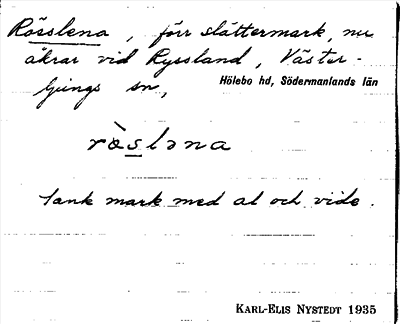 Rösslena, förr slåttermark, nu
åkrar vid Ryssland, Väster-
ljungs sn,
Hölebo hd, Södermanlands län
ròslǝna
Sank mark med al och vide.
KARL-ELIS NYSTEDT 1935